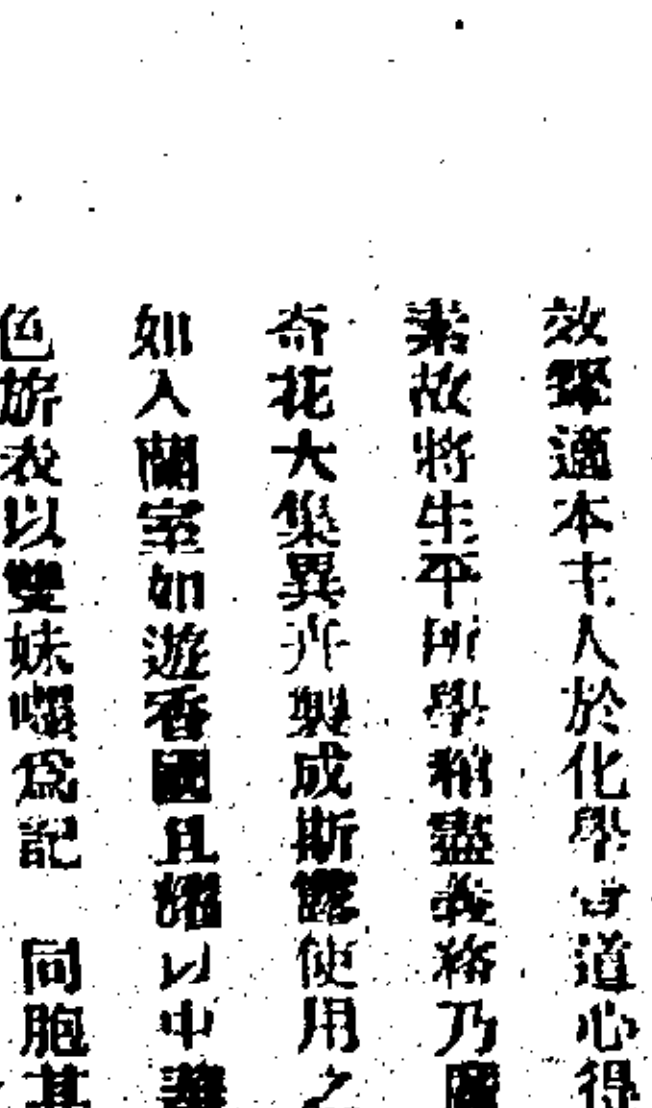 效顰適本主人於化學一道心得
素故將生平所學稍盡義務乃廣
奇花大集異卉製成斯露使用之
如入蘭室如遊香國且耀以中華
色旂衣以雙妹嚜為記 同胞其